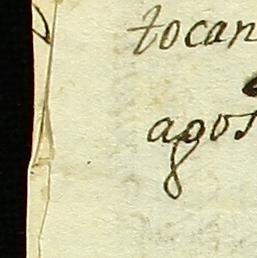 tocan
agos